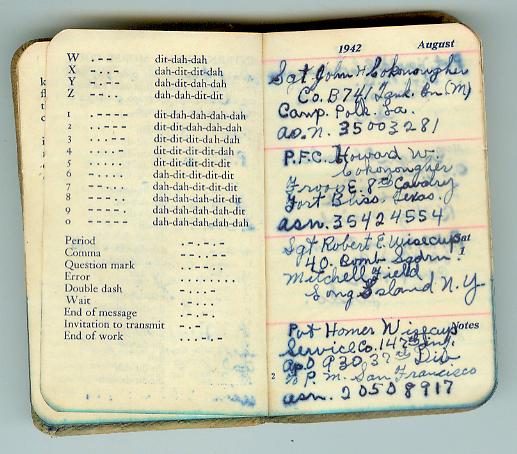 W .-- dit-dah-dah
X -..- dah-dit-dit-dah
Y -.-- dah-dit-dah-dah
Z --.. dah-dah-dit-dit
1 .---- dit-dah-dah-dah-dah
2 ..--- dit-dit-dah-dah-dah
3 ...-- dit-dit-dit-dah-dah
4 ....- dit-dit-dit-dit-dah
5 ..... dit-dit-dit-dit-dit
6 -.... dah-dit-dit-dit-dit
7 --... dah-dah-dit-dit-dit
8 ---.. dah-dah-dah-dit-dit
9 ----. dah-dah-dah-dah-dit
0 ----- dah-dah-dah-dah-dah
Period .-.-.-
Comma --..--
Question mark ..--..
Error ........
Double dash -...-
Wait .-...
End of message .-.-.
Invitation to transmit -.-
End of work ...-.-
1942 August
Sgt John H Cokonougher
Co. B 741 Tank Bn (M)
Camp Polk La.
as.n. 35003281
P.F.C. Howard W.
Cokonougher
Troop E. 8th Cavalry
Fort Bliss, Texas.
asn. 35424554
Sgt Robert E Wisecup
Sat
1
40. Bomb Sqdrn
Mitchell Field
Long Island N.Y
Pvt Homer Wisecup
Notes
Service Co. 147th Inf.
APO #930 37th Div
2
% P.M. San Francisco
asn. 20508917